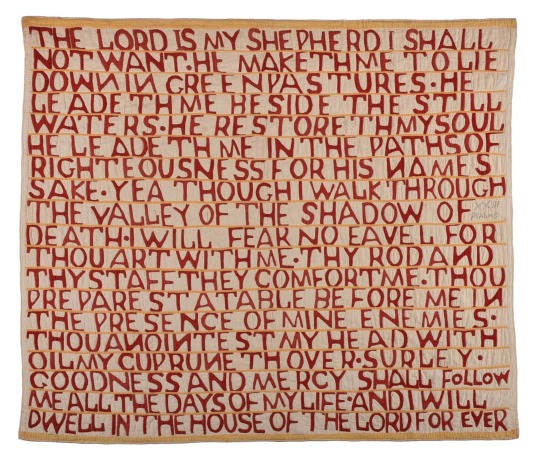 THE LORD IS MY SHEPHERD I SHALL
NOT WANT·HE MAKETH ME TO LIE
DOWN IN GREEN PASTURES·HE
LEADETH ME BESIDE THE STILL
WATERS·HE RESTORETH MY SOUL
HE LEADETH ME IN THE PATHS OF
RIGHTEOUSNESS FOR HIS NAMES
SAKE·YEA THOUGH I WALK THROUGH
THE VALLEY OF THE SHADOW OF
XXIII
PSALMS
DEATH·I WILL FEAR NO EAVEL FOR
THOU ART WITH ME·THY ROD AND
THY STAFF THEY COMFORT ME·THOU
PREPAREST A TABLE BEFORE ME IN
THE PRESENCE OF MINE ENEMIES·
THOU ANOINTEST MY HEAD WITH
OIL MY CUP RUNETH OVER·SURLEY·
GOODNESS AND MERCY SHALL FOLLOW
ME ALL THE DAYS OF MY LIFE·AND I WILL
DWELL IN THE HOUSE OF THE LORD FOR EVER